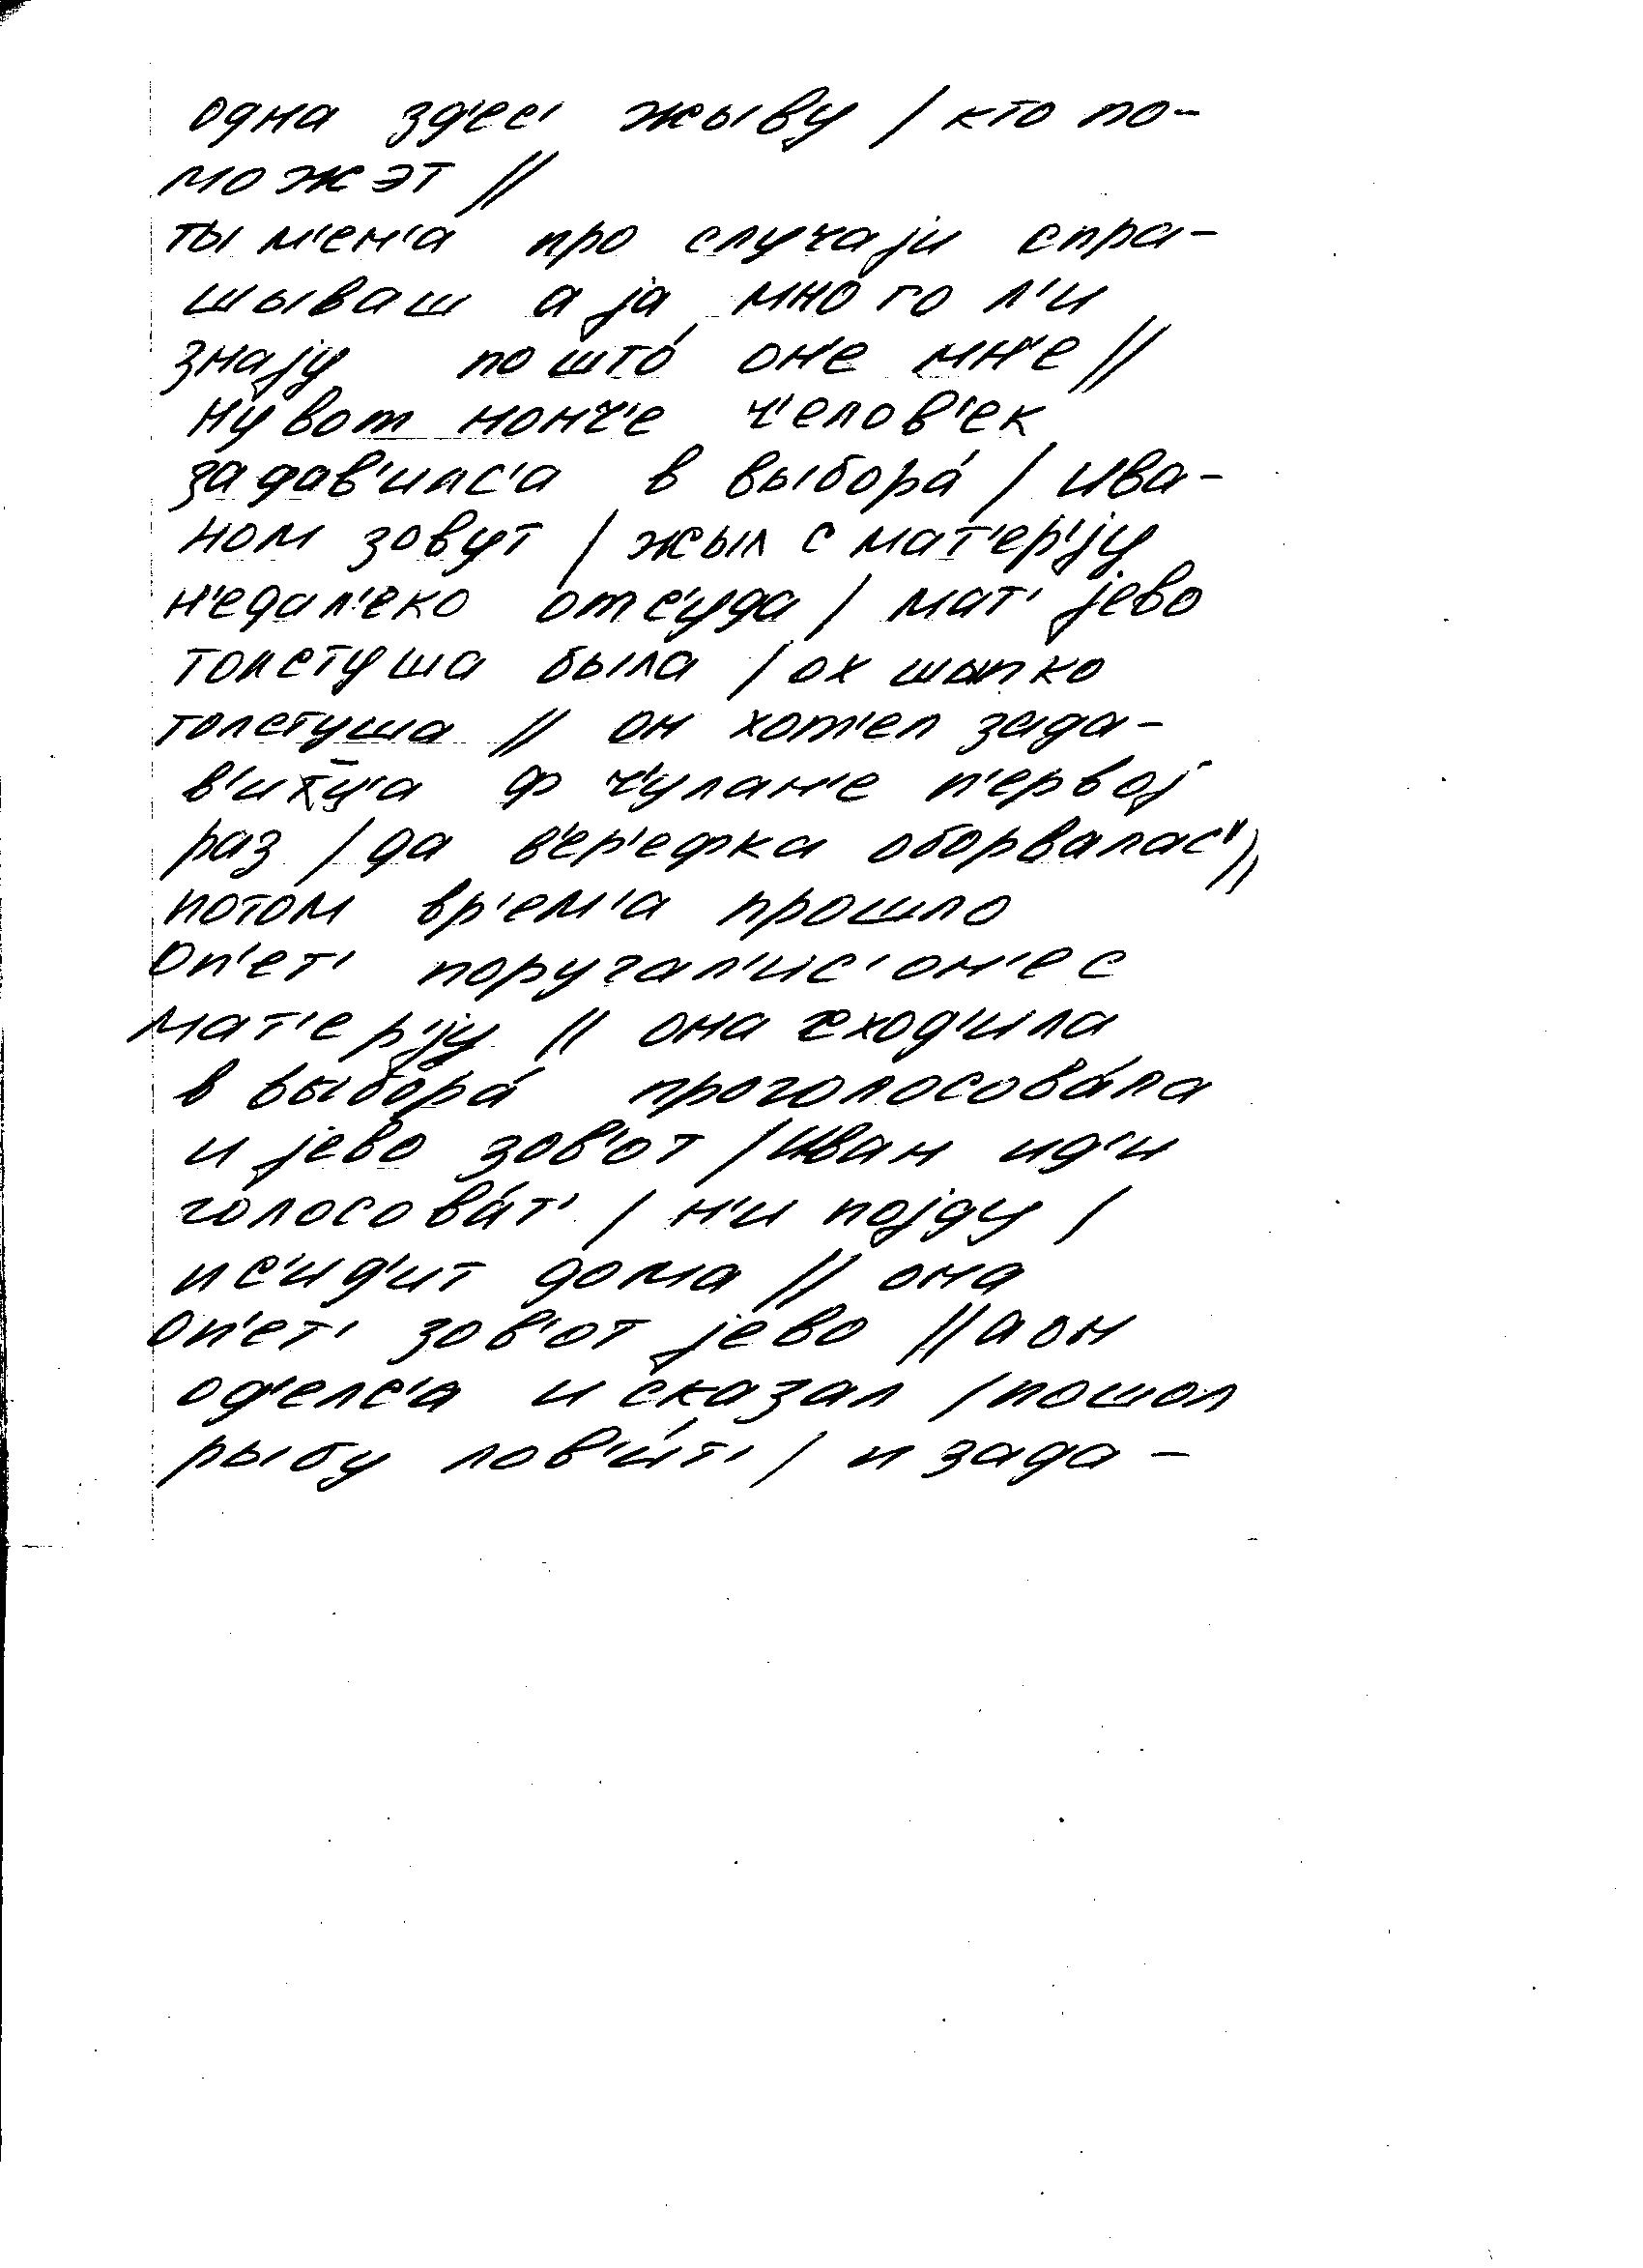 одна зд'ес' жыву / кто по-
можэт //
ты м'ен'а про случаји спра-
шываш а ја много л'и
знају пошто́ он'е мн'е //
ну вот нонч'е ч'елов'ек
задав'илс'а в выбора́ / ива-
ном зовут / жыл с мат'ер'ју
н'едал'еко отс'уда / мат' јево
толстуша была / ох шыпко
толстуша // он хот'ел зада-
в'иц̅'а ф ч'улан'е п'ервој
раз / да в'ер'ефка оборвалас' //
потом вр'ем'а прошло
оп'ет' поругал'ис' он'е с
мат'ер'ју // она сход'ила
в выбора́ проголосова́ла
и јево зов'от / Иван ид'и
голосова́т' / н'и појду /
и с'ид'ит дома // она
оп'ет' зов'от јево // а он
од'елс'а и сказал / пошол
рыбу лов'и́т' / и зада-